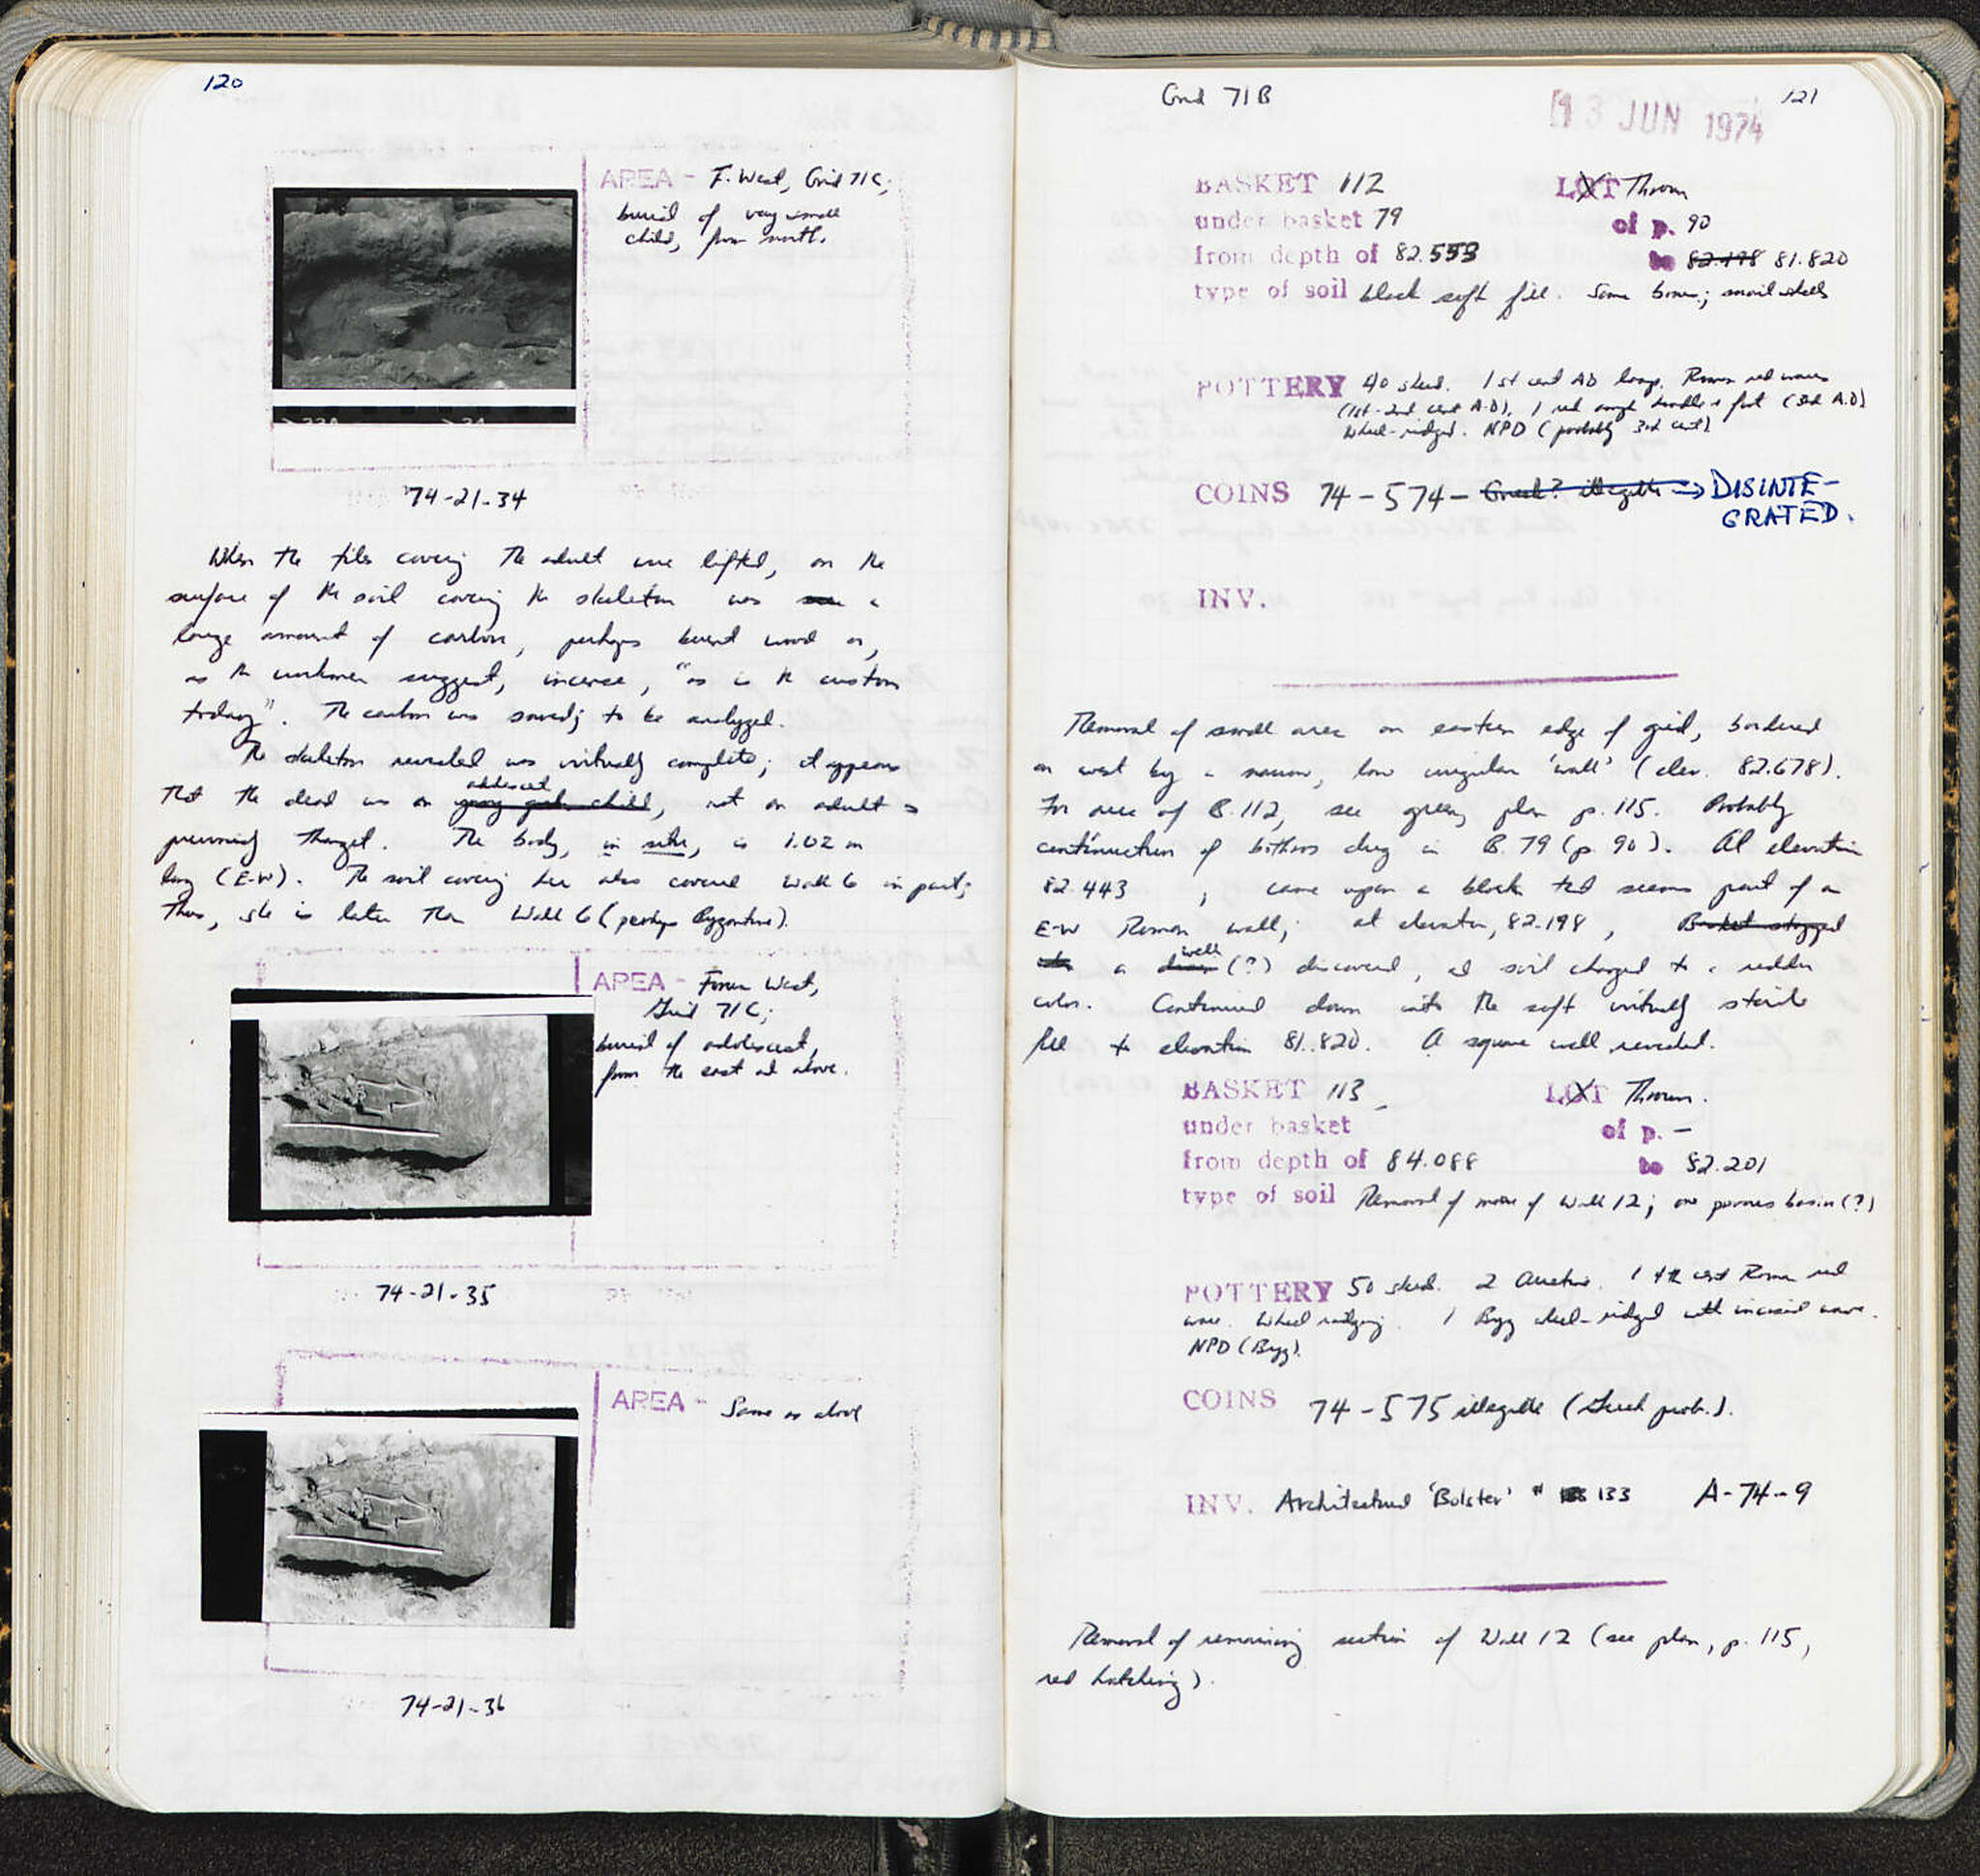 120
AREA - F. West, Grid 71C;
burial of very small
child, from north.
74-21-34
When the tiles covering the adult were lifted, on the
surface of the soil covering the skeleton was a
large amount of carbon, perhaps burnt wood or,
as the workmen suggest, incense, "as is the custom
today". The carbon was saved; to be analyzed.
The skeleton revealed was virtually complete; it appears
adolescent
that the dead was an young girl child, not an adult as
previously thought. The body, in situ, is 1.02 m
long (E-W). The soil covering her also covered Wall 6 in part;
thus, she is later than Wall 6 (perhaps Byzantine).
AREA - Forum West,
Grid 71C;
burial of adolescent,
from the east and above.
74-21-35
AREA - Same as above
74-21-36
Grid 71B
13 JUN 1974
121
BASKET 112 LOT Thrown
under basket 79 of p. 90
from depth of 82.553 to 82.198 81.820
type of soil black soft fill. Some bones; snail shells
POTTERY 40 sherd. 1st cent AD lamp. Roman red wares
(1st-2nd cent A.D), 1 red amph handle + foot (3rd A.D)
Wheel-ridged. NPD (probably 3rd cent)
COINS 74-574- Greek? illegible → DISINTE-
GRATED.
INV.
Removal of small area on eastern edge of grid, bordered
on west by a narrow, low irregular 'wall' (elev. 82.678).
For area of B.112, see green, plan p. 115. Probably
continuation of bothros dug in B. 79 (p. 90). At elevation
82.443, came upon a block that seems part of an
E-W Roman wall; at elevation, 82.198, Basket stopped
well
a (?) discovered, and soil changed to a redder
color. Continued down into the soft virtually sterile
fill to elevation 81.820. A square well revealed.
BASKET 113 LOT Thrown.
under basket of p. -
from depth of 84.088 to 82.201
type of soil Removal of more of Wall 12; one poros basin (?)
POTTERY 50 sherd. 2 Arretine. 1 4th cent Roman red
ware. Wheel ridging. 1 Byz wheel-ridged with incised wave.
NPD (Byz).
COINS 74-575 illegible (Greek prob.).
INV. Architectural 'Bolster' # 133 A-74-9
Removal of remaining section of Wall 12 (see plan, p. 115,
red hatching).